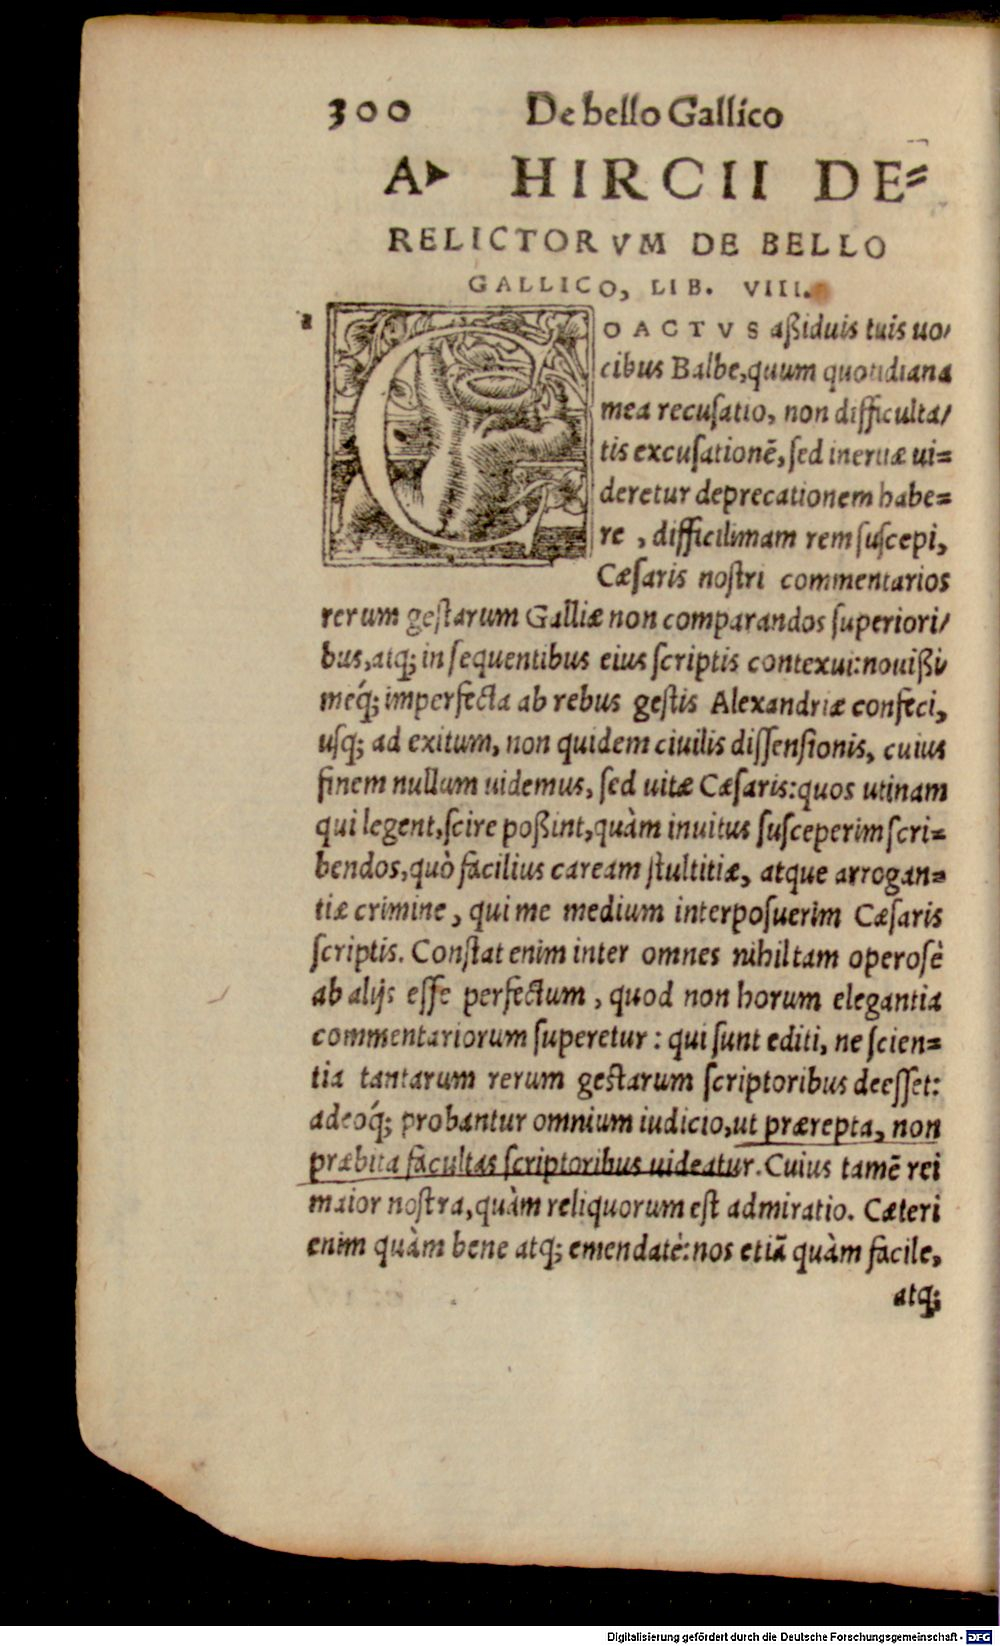 300 De bello Gallico
A. HIRCII DE-
RELICTORVM DE BELLO
GALLICO, LIB. VIII.
a
COACTVS aßiduis tuis uo-
cibus Balbe, quum quotidiana
mea recuſatio, non difficulta-
tis excuſationē, ſed inertiæ ui-
deretur deprecationem habe-
re, difficilimam rem ſuſcepi,
Cæſaris noſtri commentarios
rerum geſtarum Galliæ non comparandos ſuperiori-
bus, atq; in ſequentibus eius ſcriptis contexui: nouißi-
méq; imperfecta ab rebus geſtis Alexandriæ confeci,
uſq; ad exitum, non quidem ciuilis diſſenſionis, cuius
finem nullum uidemus, ſed uitæ Cæſaris: quos utinam
qui legent, ſcire poßint, quàm inuitus ſuſceperim ſcri-
bendos, quò facilius caream ſtultitiæ, atque arrogan-
tiæ crimine, qui me medium interpoſuerim Cæſaris
ſcriptis. Conſtat enim inter omnes nihil tam operoſè
ab alijs eſſe perfectum, quod non horum elegantia
commentariorum ſuperetur: qui ſunt editi, ne ſcien-
tia tantarum rerum geſtarum ſcriptoribus deeſſet:
adeóq; probantur omnium iudicio, ut prærepta, non
præbita facultas ſcriptoribus uideatur. Cuius tamē rei
maior noſtra, quàm reliquorum eſt admiratio. Cæteri
enim quàm bene atq; emendatè: nos etiā quàm facile,
atq;
Digitalisierung gefördert durch die Deutsche Forschungsgemeinschaft - DFG